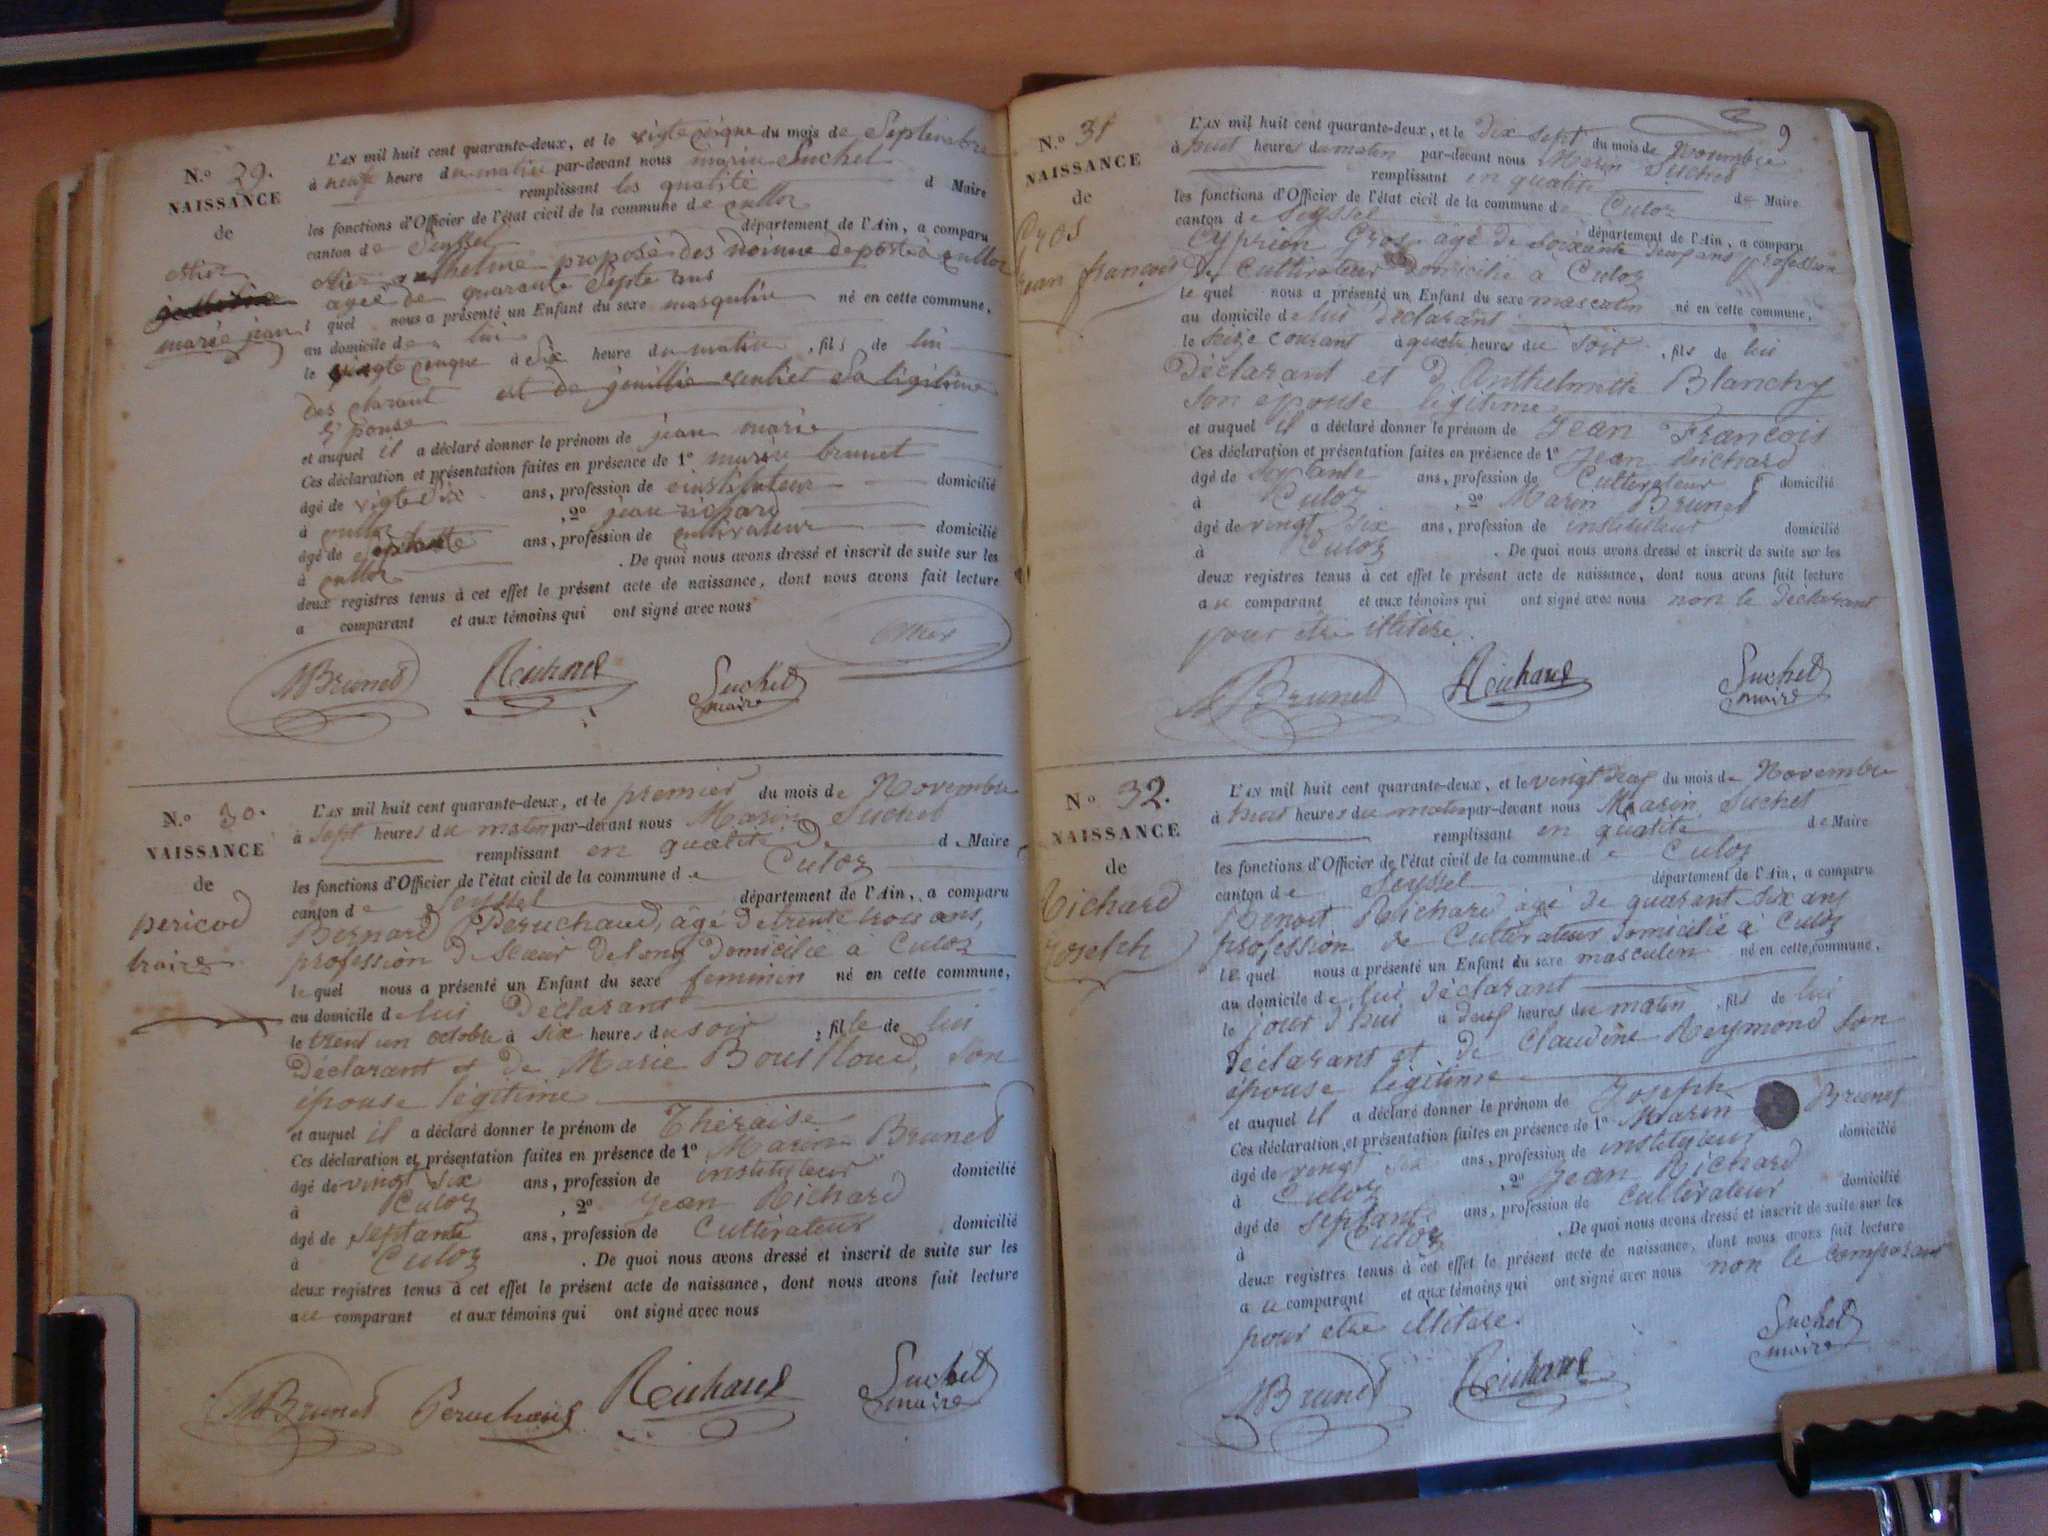 N.º 29.
NAISSANCE
de
marie jean
L'AN mil huit cent quarante-deux, et le vigte cinque du mois de Septembre
à neuf heure du matin par-devant nous marin Suchet
remplissant les qualité d Maire
les fonctions d'Officier de l'état civil de la commune de culloz
canton de Seyssel département de l'Ain, a comparu
anthelme proposé des
ageé de quarante Septe ans
l quel nous a présenté un Enfant du sexe masqulin né en cette commune,
au domicile de lui
le vingte cinque à Six heure du matin, fils de lui
des clarant est de sa ligitime
Epouse
et auquel il a déclaré donner le prénom de jean marie
Ces déclaration et présentation faites en présence de 1º marin brunet
âgé de vigte Six ans, profession de einstituteur domicilié
à culloz, 2º jean richard
âgé de septante ans, profession de cultivateur domicilié
à culloz. De quoi nous avons dressé et inscrit de suite sur les
deux registres tenus à cet effet le présent acte de naissance, dont nous avons fait lecture
a comparant et aux témoins qui ont signé avec nous
MBrunet Richard Suchet
maire
N.º 30.
NAISSANCE
de
L'AN mil huit cent quarante-deux, et le premier du mois de Novembre
à Sept heures du matin par-devant nous Marin Suchet
remplissant en qualité de d Maire
les fonctions d'Officier de l'état civil de la commune de Culoz
canton de Seyssel département de l'Ain, a comparu
Bernard Peruchaud, âgé de trente trois ans,
profession de Scieur de long domicilié à Culoz
le quel nous a présenté un Enfant du sexe feminin né en cette commune,
au domicile de lui Déclarant
le trent un octobre à six heures du soir, fille de lui
Déclarant et de Marie Bouilloud, Son
épouse légitime
et auquel il a déclaré donner le prénom de Théraise
Ces déclaration et présentation faites en présence de 1º Marin Brunet
âgé de vingt six ans, profession de instituteur domicilié
à Culoz, 2º Jean Richard
âgé de Septante ans, profession de Cultivateur domicilié
à Culoz. De quoi nous avons dressé et inscrit de suite sur les
deux registres tenus à cet effet le présent acte de naissance, dont nous avons fait lecture
au comparant et aux témoins qui ont signé avec nous
MBrunet Peruchaud Richard Suchet
maire
9
N.º 31
NAISSANCE
de
Gros
jean françois
L'AN mil huit cent quarante-deux, et le dix sept du mois de Novembre
à huit heures du matin par-devant nous Marin Suchet
remplissant en qualité de Maire
les fonctions d'Officier de l'état civil de la commune de Culoz
canton de Seyssel département de l'Ain, a comparu
Cyprien Gros âgé de Soixante deux ans profession
de Cultivateur domicilié à Culoz
le quel nous a présenté un Enfant du sexe mascolin né en cette commune,
au domicile de lui déclarant
le Seize courant à quatr heures du soir, fils de lui
Déclarant et d'Anthelmette Blanchy
Son epouse légitime
et auquel il a déclaré donner le prénom de Jean François
Ces déclaration et présentation faites en présence de 1º Jean Richard
âgé de Septante ans, profession de Cultivateur domicilié
à Culoz, 2º Marin Brunet
âgé de vingt six ans, profession de instituteur domicilié
à Culoz. De quoi nous avons dressé et inscrit de suite sur les
deux registres tenus à cet effet le présent acte de naissance, dont nous avons fait lecture
au comparant et aux témoins qui ont signé avec nous non le déclarant
pour être illitéré.
MBrunet Richard Suchet
maire
Nº 32.
NAISSANCE
de
Richard
Joseph
L'AN mil huit cent quarante-deux, et le vingt neuf du mois de Novembre
à huit heures du matin par-devant nous Marin Suchet
remplissant en qualité de Maire
les fonctions d'Officier de l'état civil de la commune de Culoz
canton de Seyssel département de l'Ain, a comparu
Benoit Richard âgé de quarant six ans
profession de Cultivateur domicilié à Culoz
le quel nous a présenté un Enfant du sexe masculin né en cette commune,
au domicile de lui déclarant
le jour d'hui a deux heures du matin, fils de lui
déclarant et de Claudine Reymond son
épouse légitime
et auquel il a déclaré donner le prénom de Joseph
Ces déclaration et présentation faites en présence de 1º Marin Brunet
âgé de vingt six ans, profession de instituteur domicilié
à Culoz, 2º Jean Richard
âgé de Septante ans, profession de cultivateur domicilié
à Culoz. De quoi nous avons dressé et inscrit de suite sur les
deux registres tenus à cet effet le présent acte de naissance, dont nous avons fait lecture
au comparant et aux témoins qui ont signé avec nous non le comparant
pour être illitéré.
MBrunet Richard Suchet
maire